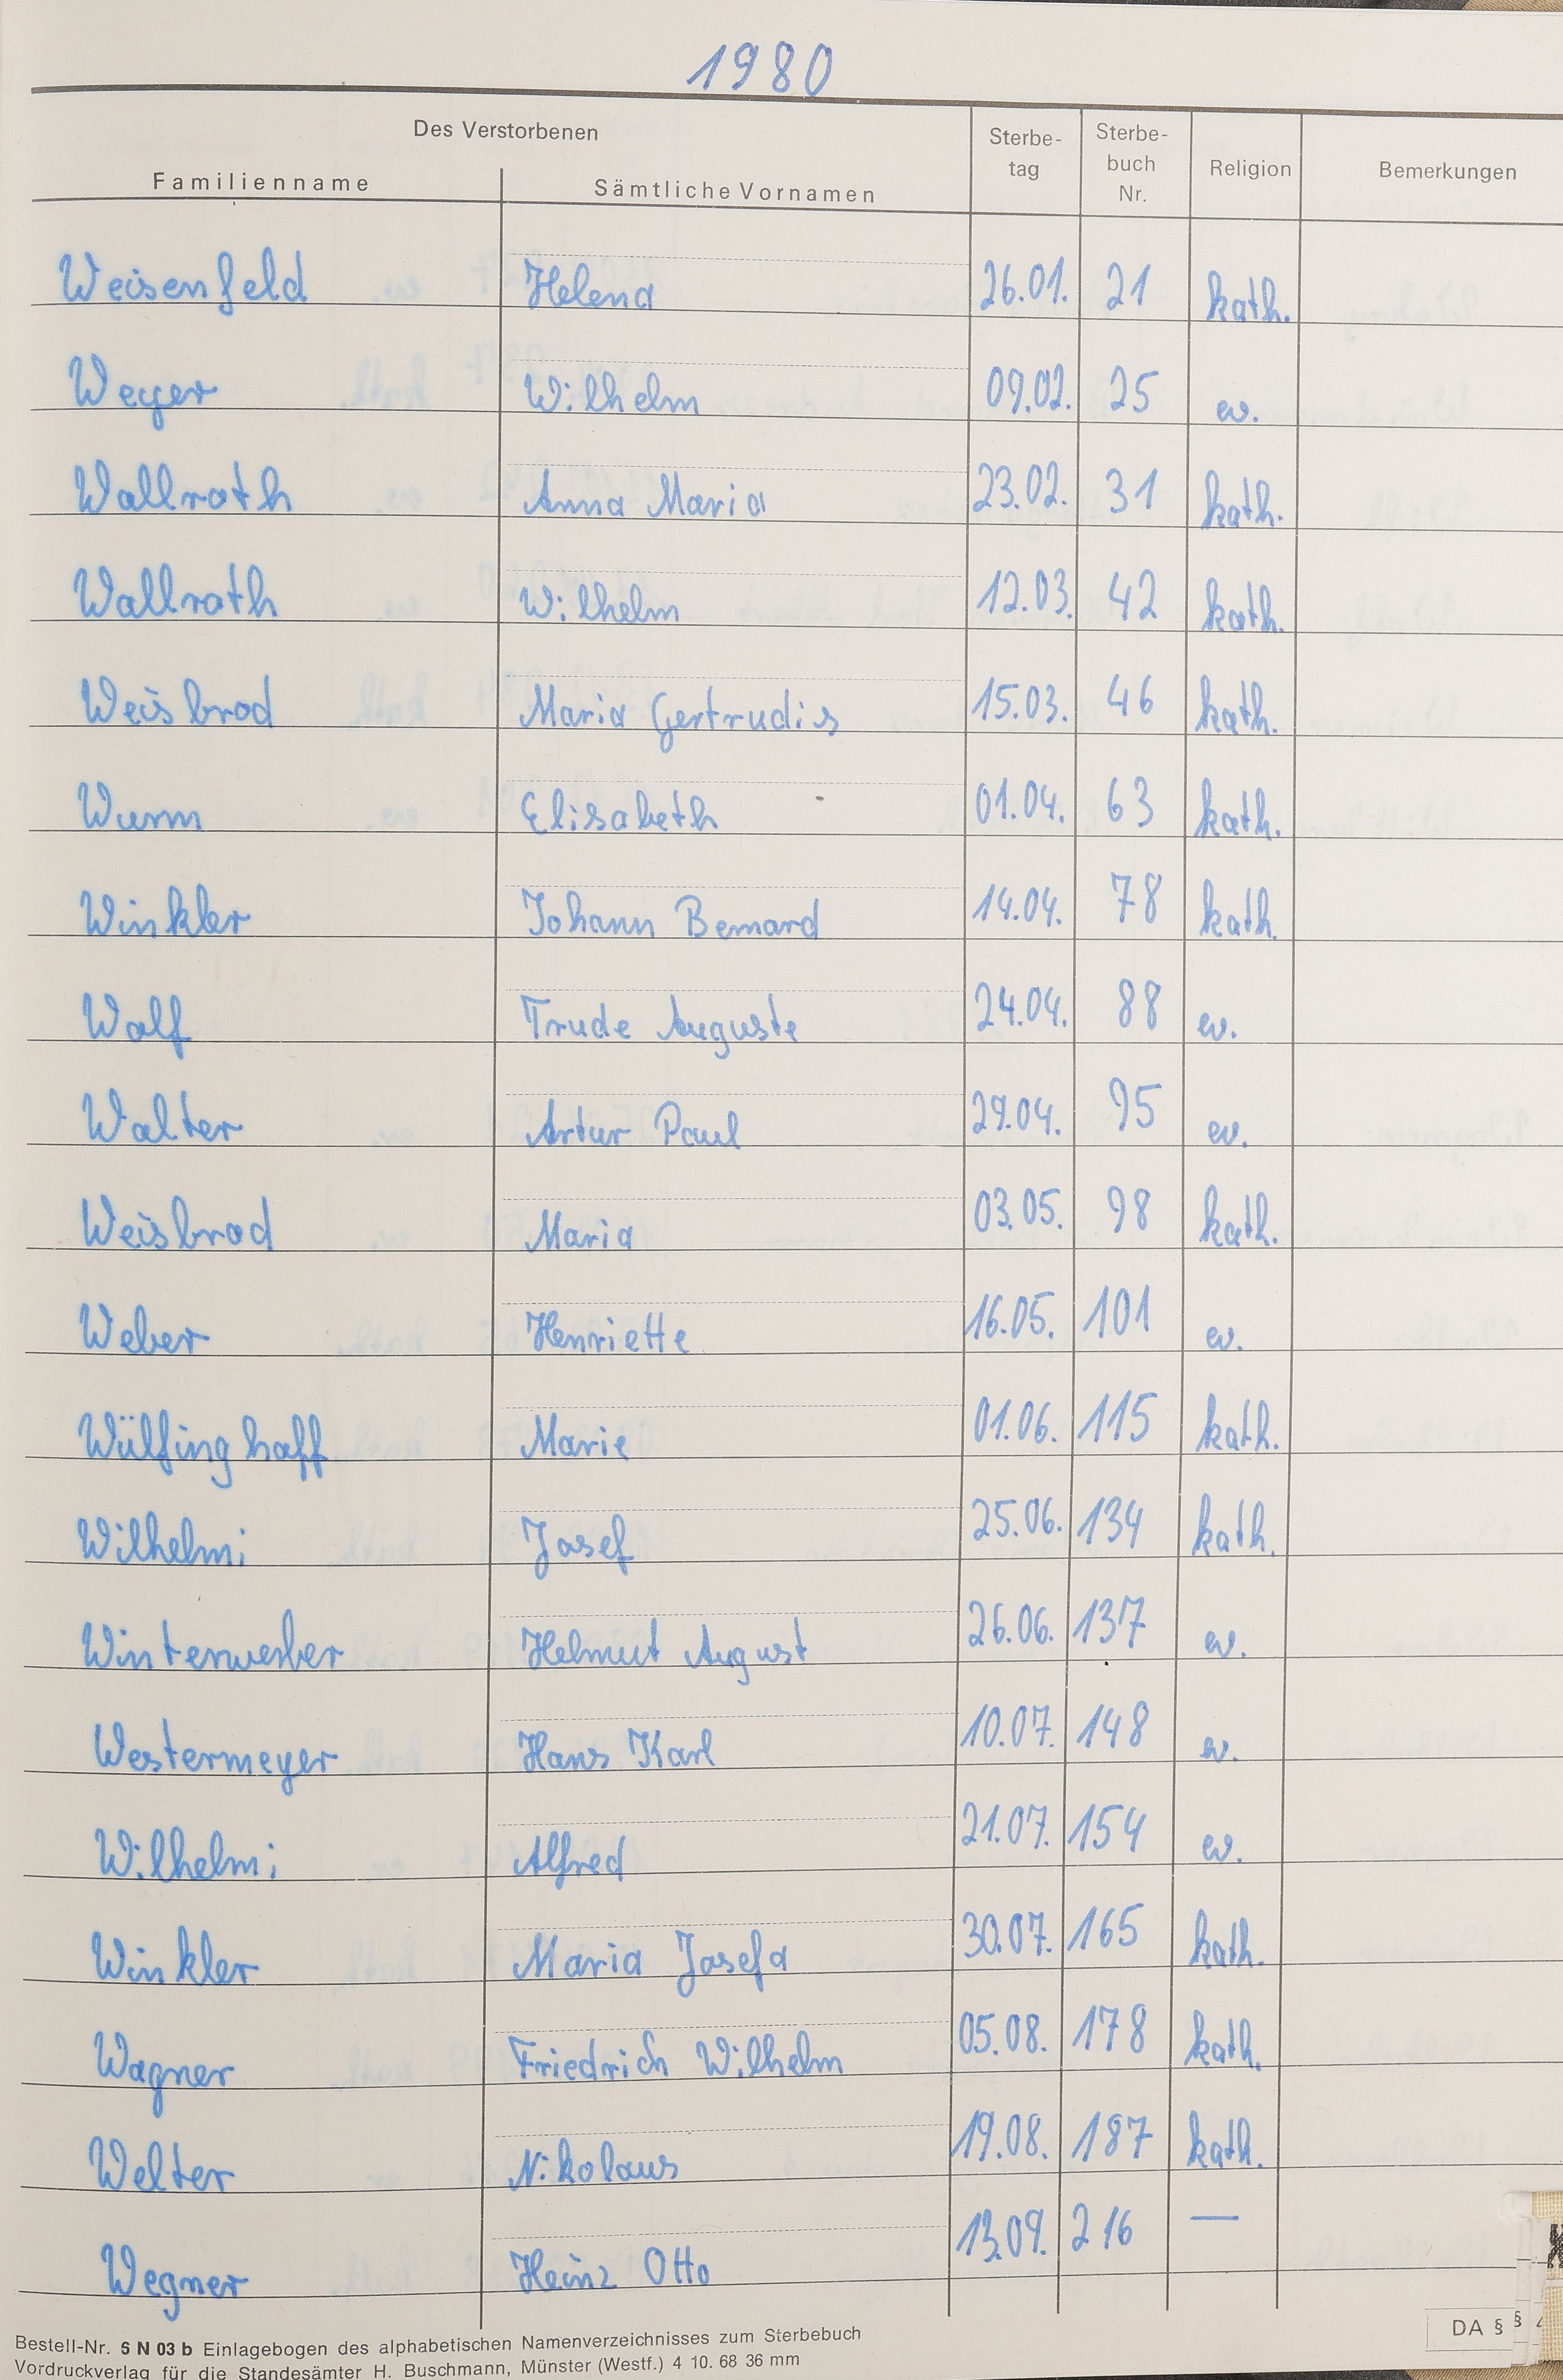 1980
Des Verstorbenen
Familienname Sämtliche Vornamen Sterbe-tag Sterbe-buch Nr. Religion Bemerkungen
Weisenfeld Helena 26.01. 21 kath.
Weyer Wilhelm 09.02. 25 ev.
Wallrath Anna Maria 23.02. 31 kath.
Wallrath Wilhelm 12.03. 42 kath.
Weisbrod Maria Gertrudis 15.03. 46 kath.
Wurm Elisabeth 01.04. 63 kath.
Winkler Johann Bernard 14.04. 78 kath.
Wolf Trude Auguste 24.04. 88 ev.
Walter Artur Paul 29.04. 95 ev.
Weisbrod Maria 03.05. 98 kath.
Weber Henriette 16.05. 101 ev.
Wülfinghoff Marie 01.06. 115 kath.
Wilhelmi Josef 25.06. 134 kath.
Winterwerber Helmut August 26.06. 137 ev.
Westermeyer Hans Karl 10.07. 148 ev.
Wilhelmi Alfred 21.07. 154 ev.
Winkler Maria Josefa 30.07. 165 kath.
Wagner Friedrich Wilhelm 05.08. 178 kath.
Welter Nikolaus 19.08. 187 kath.
Wegner Heinz Otto 13.09. 216 —
Bestell-Nr. 6 N 03 b Einlagebogen des alphabetischen Namenverzeichnisses zum Sterbebuch
Vordruckverlag für die Standesämter H. Buschmann, Münster (Westf.) 4 10. 68 36 mm
DA §